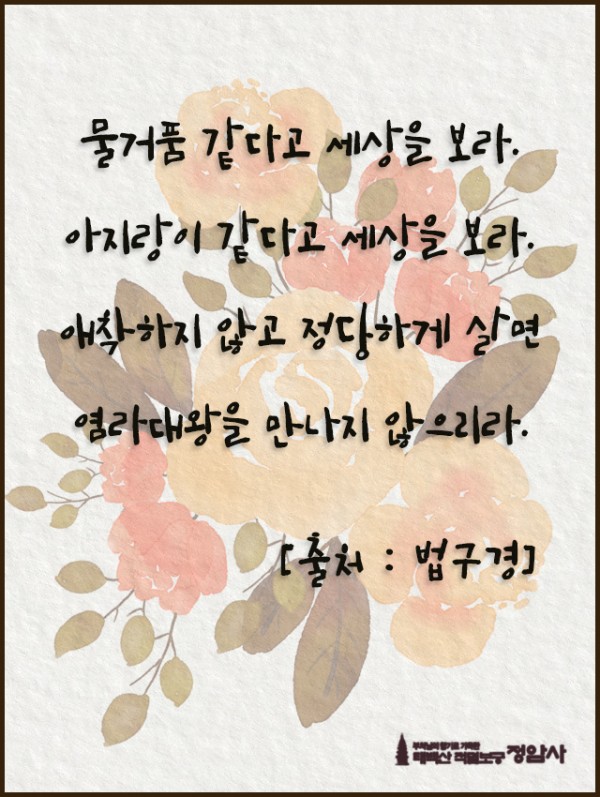 물거품 같다고 세상을 보라.
아지랑이 같다고 세상을 보라.
애착하지 않고 정당하게 살면
염라대왕을 만나지 않으리라.
[출처 : 법구경]
태백산 적멸보궁 정암사